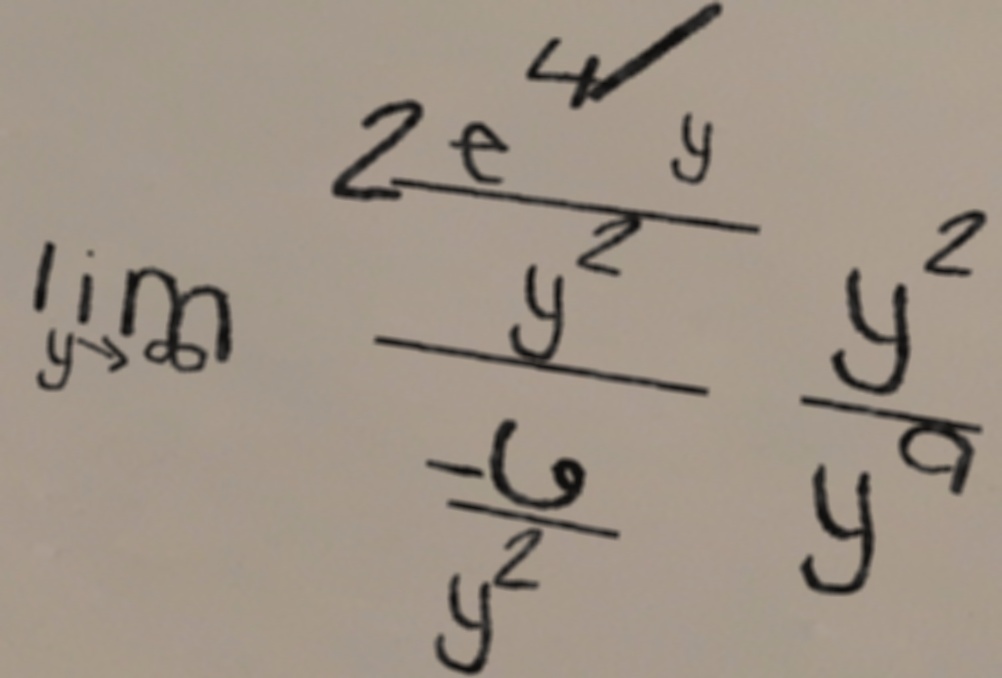 \lim_{y \to \infty} \frac{\frac{2e^{4/y}}{y^2}}{\frac{-6}{y^2}} \frac{y^2}{y^9}